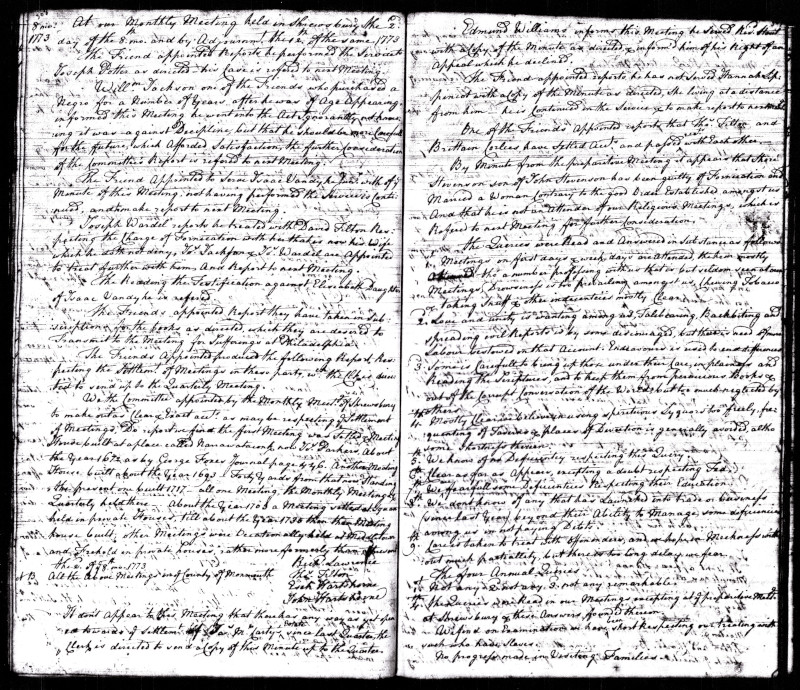 8 mo:
1773
At our Monthly Meeting held in Shrewsbury the 2
day of the 8 mo: and by Adjournmt the of the same 1773
The Friend appointed Reports he performed the Service to
Joseph Potter as directed his Case is refered to next Meeting
Willm Jackson one of the Friends who purchased a
Negro for a Number of Years, after he was of Age Appearing
informed this Meeting he went into the Act Ignorantly not knowing
it was against Discipline, but that he should be more Careful
for the future, which Afforded Satisfaction, the further Consideration
of the Committee's Report is refered to next Meeting
The Friend Appointed to Serve Isaac Vandyke Junr with of ye
Minute of this Meeting, not having performed the Service is Continued,
and make report to next Meeting
Joseph Wardel reports he treated with David Tilton Respecting
the Charge of Fornication with her that is now his Wife
which he doth not deny, Jackson & Jos Wardel are Appointed
to treat further with them, And Report to next Meeting
The Reading the Testification against Elizabeth Daughter
of Isaac Vandyke is refered
The Friends appointed Report they have taken in Subscriptions
for the books as directed, which they are desired to
Transmit to the Meeting for Sufferings at Philadelphia
The Friends Appointed produced the following Report, Respecting
the Settlemt of Meetings in these parts, wch the Clerk directed
to send up to the Quarterly Meeting
We the Committee appointed by the Monthly Meetg of Shrewsbury
to make out as Clear & Exact acct as may be respecting ye Settlement
of Meetings, Do report we find the first Meeting was Settled & Meeting
House built at a place called Narawatacunk near Jos Parkers, About
the Year 1672 as by George Foxes Journal page 446. Another Meeting
House built about the Year 1693 Forty Yards from that now Standing
The present one built 1717 all one Meeting, the Monthly Meetings &
Quarterly held there. About the Year 1705 a Meeting settled at Squan
held in private Houses, till about the Year 1730 then their Meeting
house built; other Meetings were Occationally held at Middletown
and Freehold in private houses, rather more formerly than at present
the 2 of 8 mo 1773
All the above Meetings in ye County of Monmouth
Rich Lawrence
Thos Tilton
Esek Hartshorne
John Hartshorne
It dont Appear to this Meeting that there has any way as yet opened
towards ye Settlement of Jas McCartys Estate since last Quarter, the
Clerk is directed to send a Copy of this Minute up to the Quarter
Edmund Williams informs this Meeting he served Rest Stout
with a Copy of the Minute as directed & inform'd him of his Right of an
Appeal which he declined
The Friend appointed reports he has not served Hannah Lippencott
with a Copy of the Minute as directed, She living at a distance
from him he is Continued in the Service & to make report to next Meetg
One of the Friends Appointed reports that Thos Tilton and
Brittain Corlies have Settled Acts and passed with Each other
By Minute from the preparitive Meeting it appears that
Stevenson son of John Stevenson has been guilty of Fornication and
Married a Woman Contrary to the good Order Established amongst us
And that he is not an attender of our Religious Meetings, which is
Refered to next Meeting for further Consideration
The Queries were Read and Answered in Substance as follows
Meetings on first days & week days are attended, the hour mostly
tho a number professing with us that is but seldom seen at our
Meetings, Drowsiness is too prevailing amongst us, Chewing Tobacco
Taking Snuff & other indecencies mostly Clear
2. Love and Unity is wanting among us, Talebearing, Backbiting and
spreading evil Reports is by some discouraged, but there is need of more
Labour bestowed on that Account. Endeavours is used to end differences
3. Some is Carefull to bring up those under their Care, in plainness and
Reading the Scriptures, and to keep them from pernicious Books &
out of the Corrupt Conversation of the World, but too much neglected by
others
4. Mostly Clear we believe in using spirituous Lyquors too freely, frequenting
of Taverns & places of Diversion is generally avoided, altho
some Shortness therein
We know of no Deficiency respecting this Query
Clear as far as Appears, excepting a doubt respecting
We fear full some Deficiencies Respecting their Education
8. We dont know of any that has Launched into trade or business
(some last Year) beyond their Ability to Manage, some deficiencies
among us respecting Debts
9. Care is taken to treat with offenders, and we hope in Meekness with
out much partiality, but there is too long delay we fear
The four Annual Queries
Not any & not any, 3 not any remarkable
4. The Queries are Read in our Meetings excepting at ye preparitive Meetg
at Shrewsbury & these Answers found thereon
We find on Examination we have been short Respecting our treating with
such who have Slaves
No progress made in Visiting Families